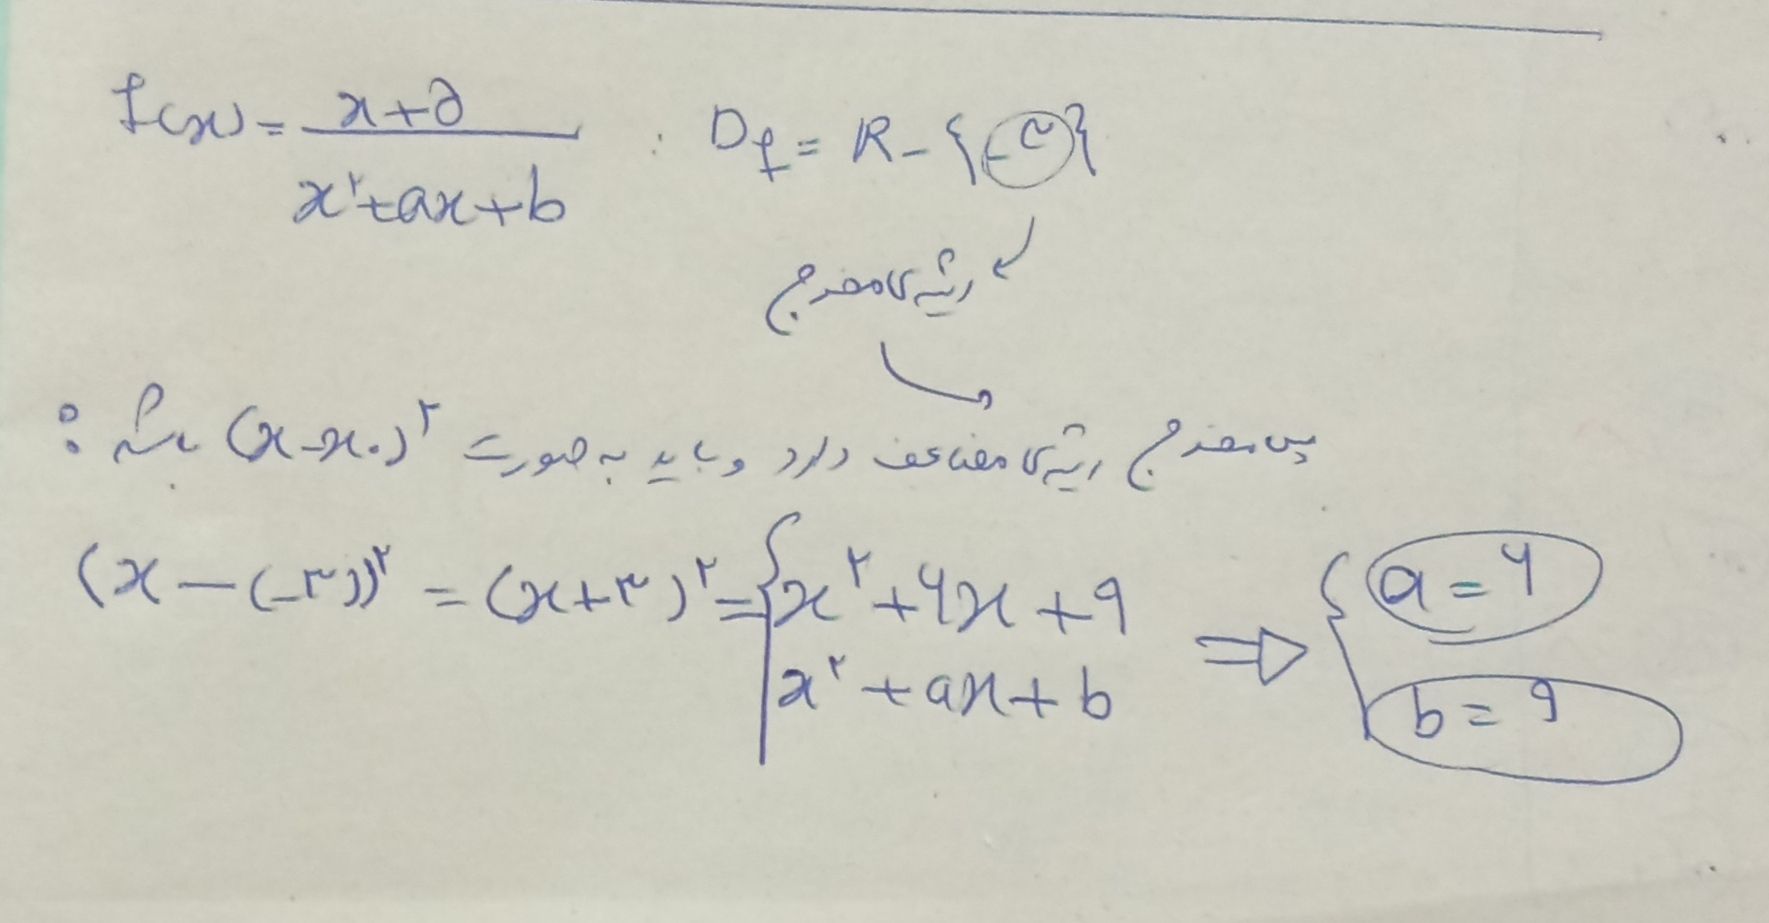 f(x) = (x+۵)/(x²+ax+b) . Df = R - {-۳}
ریشه‌ی مخرج
پس مخرج ریشه‌ی مضاعف دارد و باید به صورت (x-x₀)² باشه :
(x-(-۳))² = (x+۳)² = { x²+۶x+۹ ⇒ { a=۶
x²+ax+b b=۹